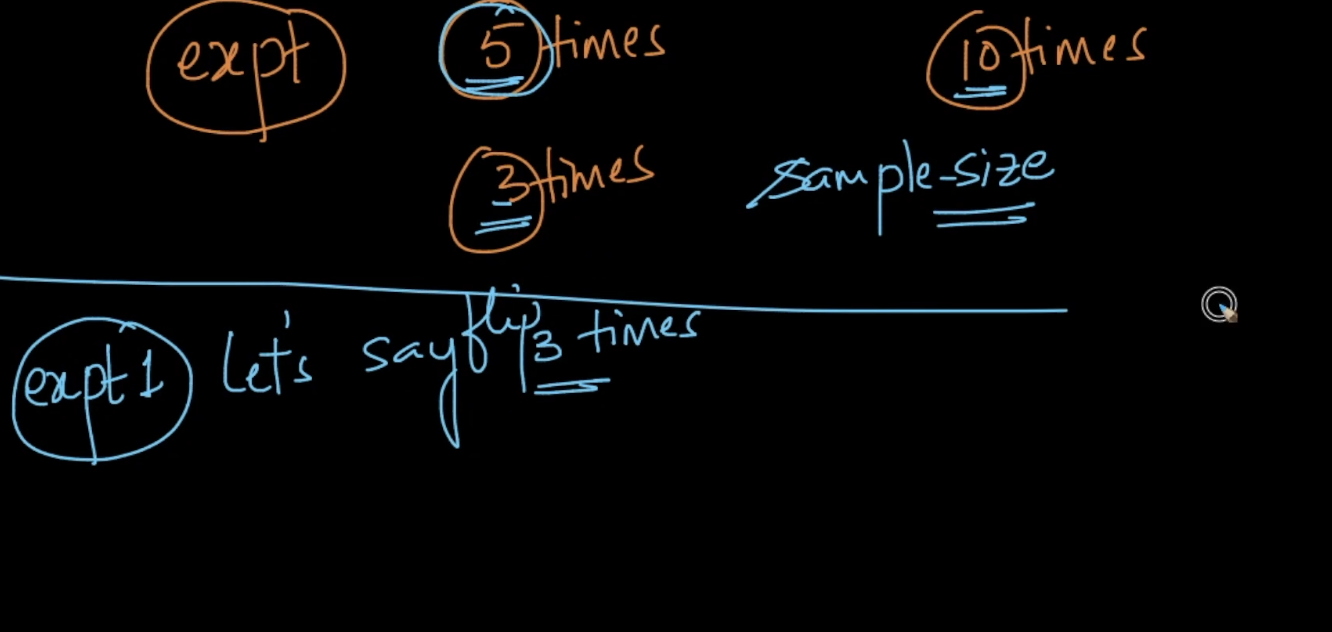 expt 5 times 10 times
3 times sample-size
expt 1 Let's say flip 3 times